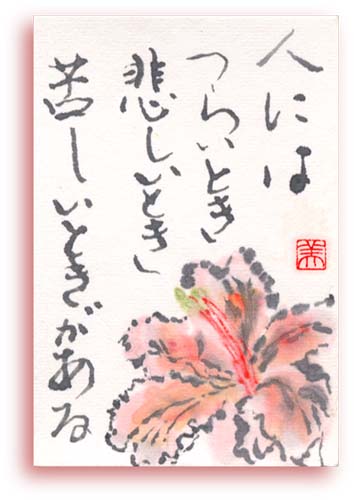 人には
つらいとき
悲しいとき
苦しいときがある
美